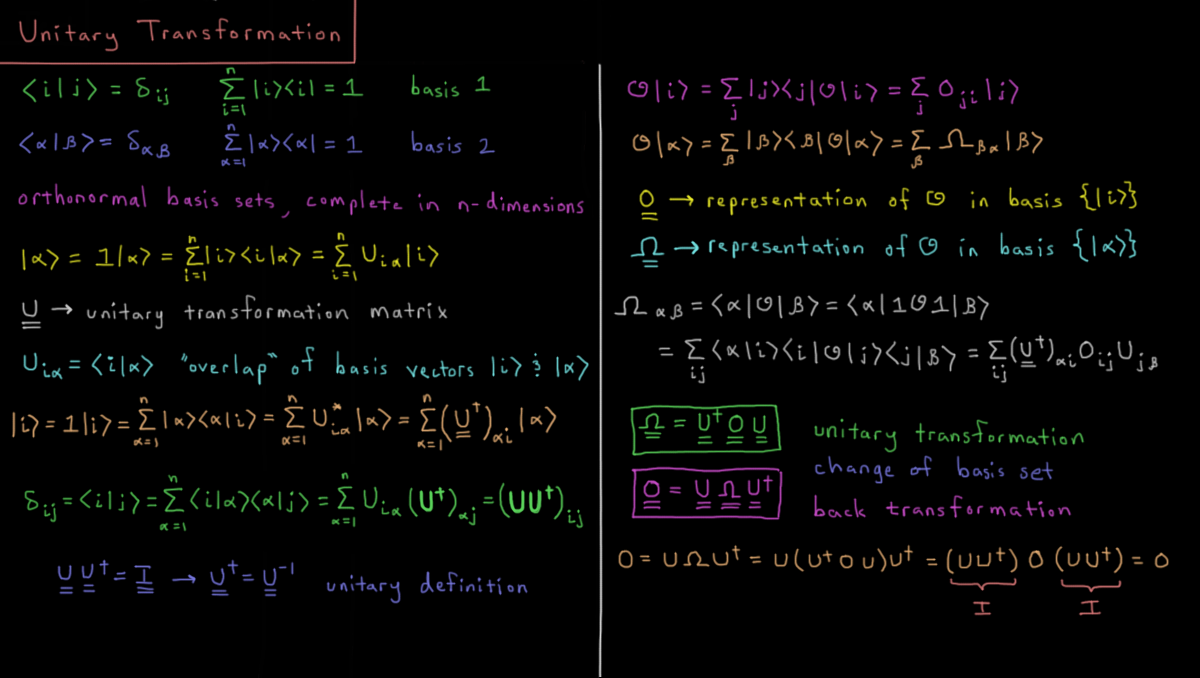 Unitary Transformation
<i|j> = δ_ij   Σ_{i=1}^{n} |i><i| = 1   basis 1
<α|β> = δ_αβ   Σ_{α=1}^{n} |α><α| = 1   basis 2
orthonormal basis sets, complete in n-dimensions
|α> = 1|α> = Σ_{i=1}^{n} |i><i|α> = Σ_{i=1}^{n} U_iα |i>
U → unitary transformation matrix
U_iα = <i|α> "overlap" of basis vectors |i> & |α>
|i> = 1|i> = Σ_{α=1}^{n} |α><α|i> = Σ_{α=1}^{n} U*_iα |α> = Σ_{α=1}^{n} (U†)_αi |α>
δ_ij = <i|j> = Σ_{α=1}^{n} <i|α><α|j> = Σ_{α=1}^{n} U_iα (U†)_αj = (UU†)_ij
U U† = I → U† = U⁻¹ unitary definition
𝒪|i> = Σ_j |j><j|𝒪|i> = Σ_j O_ji |j>
𝒪|α> = Σ_β |β><β|𝒪|α> = Σ_β Ω_βα |β>
O → representation of 𝒪 in basis {|i>}
Ω → representation of 𝒪 in basis {|α>}
Ω_αβ = <α|𝒪|β> = <α|1𝒪1|β>
= Σ_ij <α|i><i|𝒪|j><j|β> = Σ_ij (U†)_αi O_ij U_jβ
Ω = U† O U   unitary transformation
change of basis set
O = U Ω U†   back transformation
O = U Ω U† = U(U† O U)U† = (UU†) O (UU†) = O
I   I